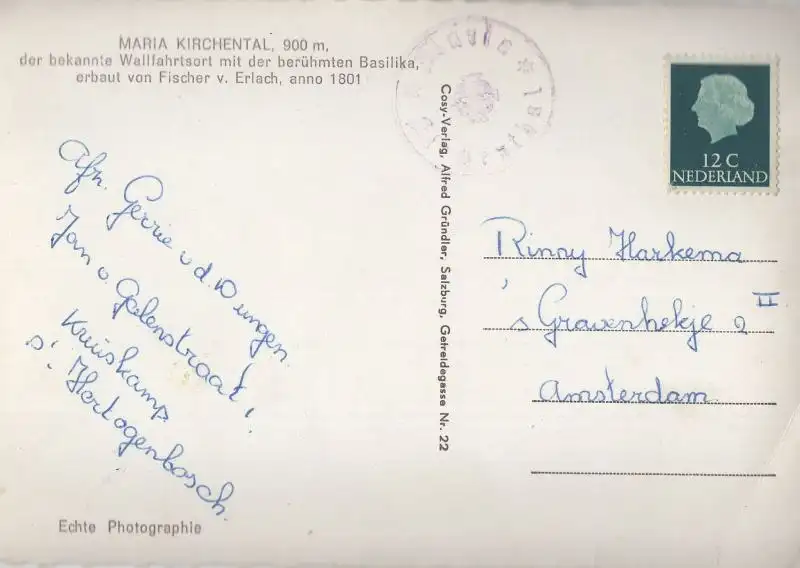 MARIA KIRCHENTAL, 900 m,
der bekannte Wallfahrtsort mit der berühmten Basilika,
erbaut von Fischer v. Erlach, anno 1801
Afz. Gerrie v.d. Dungen.
Jan v. Galenstraat 1
Kruiskamp
s'Hertogenbosch.
Echte Photographie
Cosy-Verlag, Alfred Gründler, Salzburg, Getreidegasse Nr. 22
12 C
NEDERLAND
Rinny Harkema
's Gravenhekje 2 II
Amsterdam